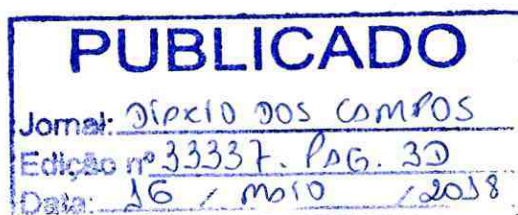 PUBLICADO
Jornal: DIÁRIO DOS CAMPOS
Edição nº 33337. PAG. 3D
Data: 16 / MAIO / 2018